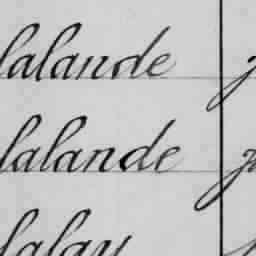 lalande
lalande
lalay